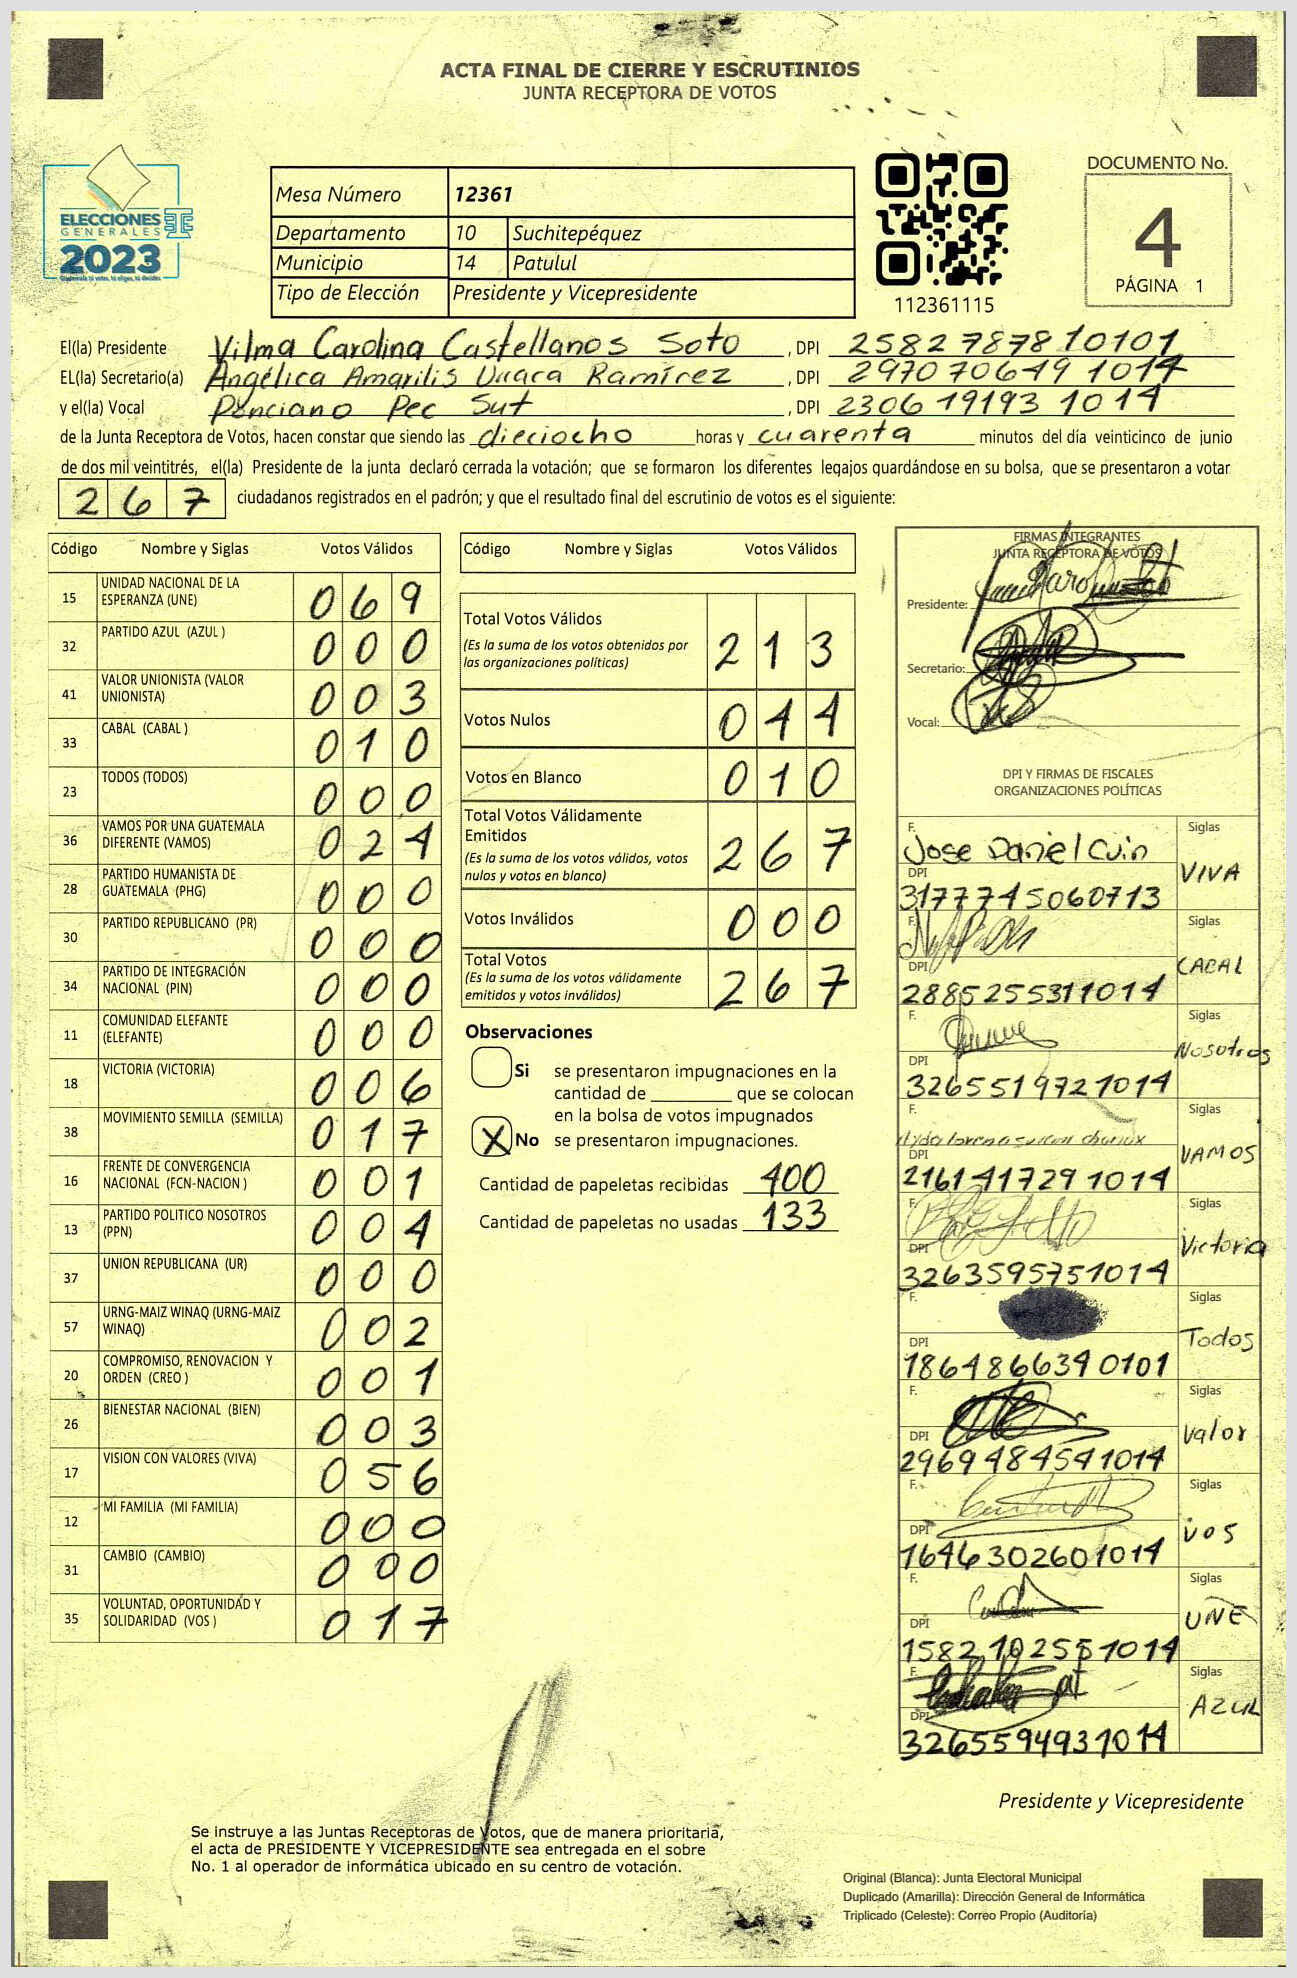 ACTA FINAL DE CIERRE Y ESCRUTINIOS
JUNTA RECEPTORA DE VOTOS
ELECCIONES
GENERALES
2023
Mesa Número 12361
Departamento 10 Suchitepéquez
Municipio 14 Patulul
Tipo de Elección Presidente y Vicepresidente
112361115
DOCUMENTO No.
4
PÁGINA 1
El(la) Presidente Vilma Carolina Castellanos Soto , DPI 2582787810101
EL(la) Secretario(a) Angélica Amarilis Ramírez , DPI 2970706491014
y el(la) Vocal Ponciano Pec Sut , DPI 2306191931014
de la Junta Receptora de Votos, hacen constar que siendo las dieciocho horas y cuarenta minutos del día veinticinco de junio
de dos mil veintitrés, el(la) Presidente de la junta declaró cerrada la votación; que se formaron los diferentes legajos guardándose en su bolsa, que se presentaron a votar
267 ciudadanos registrados en el padrón; y que el resultado final del escrutinio de votos es el siguiente:
Código Nombre y Siglas Votos Válidos
15 UNIDAD NACIONAL DE LA ESPERANZA (UNE) 069
32 PARTIDO AZUL (AZUL ) 000
41 VALOR UNIONISTA (VALOR UNIONISTA) 003
33 CABAL (CABAL ) 010
23 TODOS (TODOS) 000
36 VAMOS POR UNA GUATEMALA DIFERENTE (VAMOS) 024
28 PARTIDO HUMANISTA DE GUATEMALA (PHG) 000
30 PARTIDO REPUBLICANO (PR) 000
34 PARTIDO DE INTEGRACIÓN NACIONAL (PIN) 000
11 COMUNIDAD ELEFANTE (ELEFANTE) 000
18 VICTORIA (VICTORIA) 006
38 MOVIMIENTO SEMILLA (SEMILLA) 017
16 FRENTE DE CONVERGENCIA NACIONAL (FCN-NACION ) 001
13 PARTIDO POLITICO NOSOTROS (PPN) 004
37 UNION REPUBLICANA (UR) 000
57 URNG-MAIZ WINAQ (URNG-MAIZ WINAQ) 002
20 COMPROMISO, RENOVACION Y ORDEN (CREO ) 001
26 BIENESTAR NACIONAL (BIEN) 003
17 VISION CON VALORES (VIVA) 056
12 MI FAMILIA (MI FAMILIA) 000
31 CAMBIO (CAMBIO) 000
35 VOLUNTAD, OPORTUNIDAD Y SOLIDARIDAD (VOS ) 017
Código Nombre y Siglas Votos Válidos
Total Votos Válidos 213
(Es la suma de los votos obtenidos por
las organizaciones políticas)
Votos Nulos 044
Votos en Blanco 010
Total Votos Válidamente
Emitidos 267
(Es la suma de los votos válidos, votos
nulos y votos en blanco)
Votos Inválidos 000
Total Votos 267
(Es la suma de los votos válidamente
emitidos y votos inválidos)
Observaciones
Si se presentaron impugnaciones en la
cantidad de ________ que se colocan
en la bolsa de votos impugnados
X No se presentaron impugnaciones.
Cantidad de papeletas recibidas 400
Cantidad de papeletas no usadas 133
FIRMAS INTEGRANTES
JUNTA RECEPTORA DE VOTOS
Presidente:
Secretario:
Vocal:
DPI Y FIRMAS DE FISCALES
ORGANIZACIONES POLÍTICAS
F. Jose Daniel Cuin Siglas VIVA
DPI 3177745060713
F. Siglas CABAL
DPI 2885255311014
F. Siglas Nosotros
DPI 3265519721014
F. Siglas VAMOS
DPI 2161417291014
F. Siglas Victoria
DPI 3263595751014
F. Siglas Todos
DPI 1864866340101
F. Siglas Valor
DPI 2969484541014
F. Siglas VOS
DPI 1646302601014
F. Siglas UNE
DPI 1582102551014
F. Siglas AZUL
DPI 3265594931014
Presidente y Vicepresidente
Se instruye a las Juntas Receptoras de Votos, que de manera prioritaria,
el acta de PRESIDENTE Y VICEPRESIDENTE sea entregada en el sobre
No. 1 al operador de informática ubicado en su centro de votación.
Original (Blanca): Junta Electoral Municipal
Duplicado (Amarilla): Dirección General de Informática
Triplicado (Celeste): Correo Propio (Auditoría)